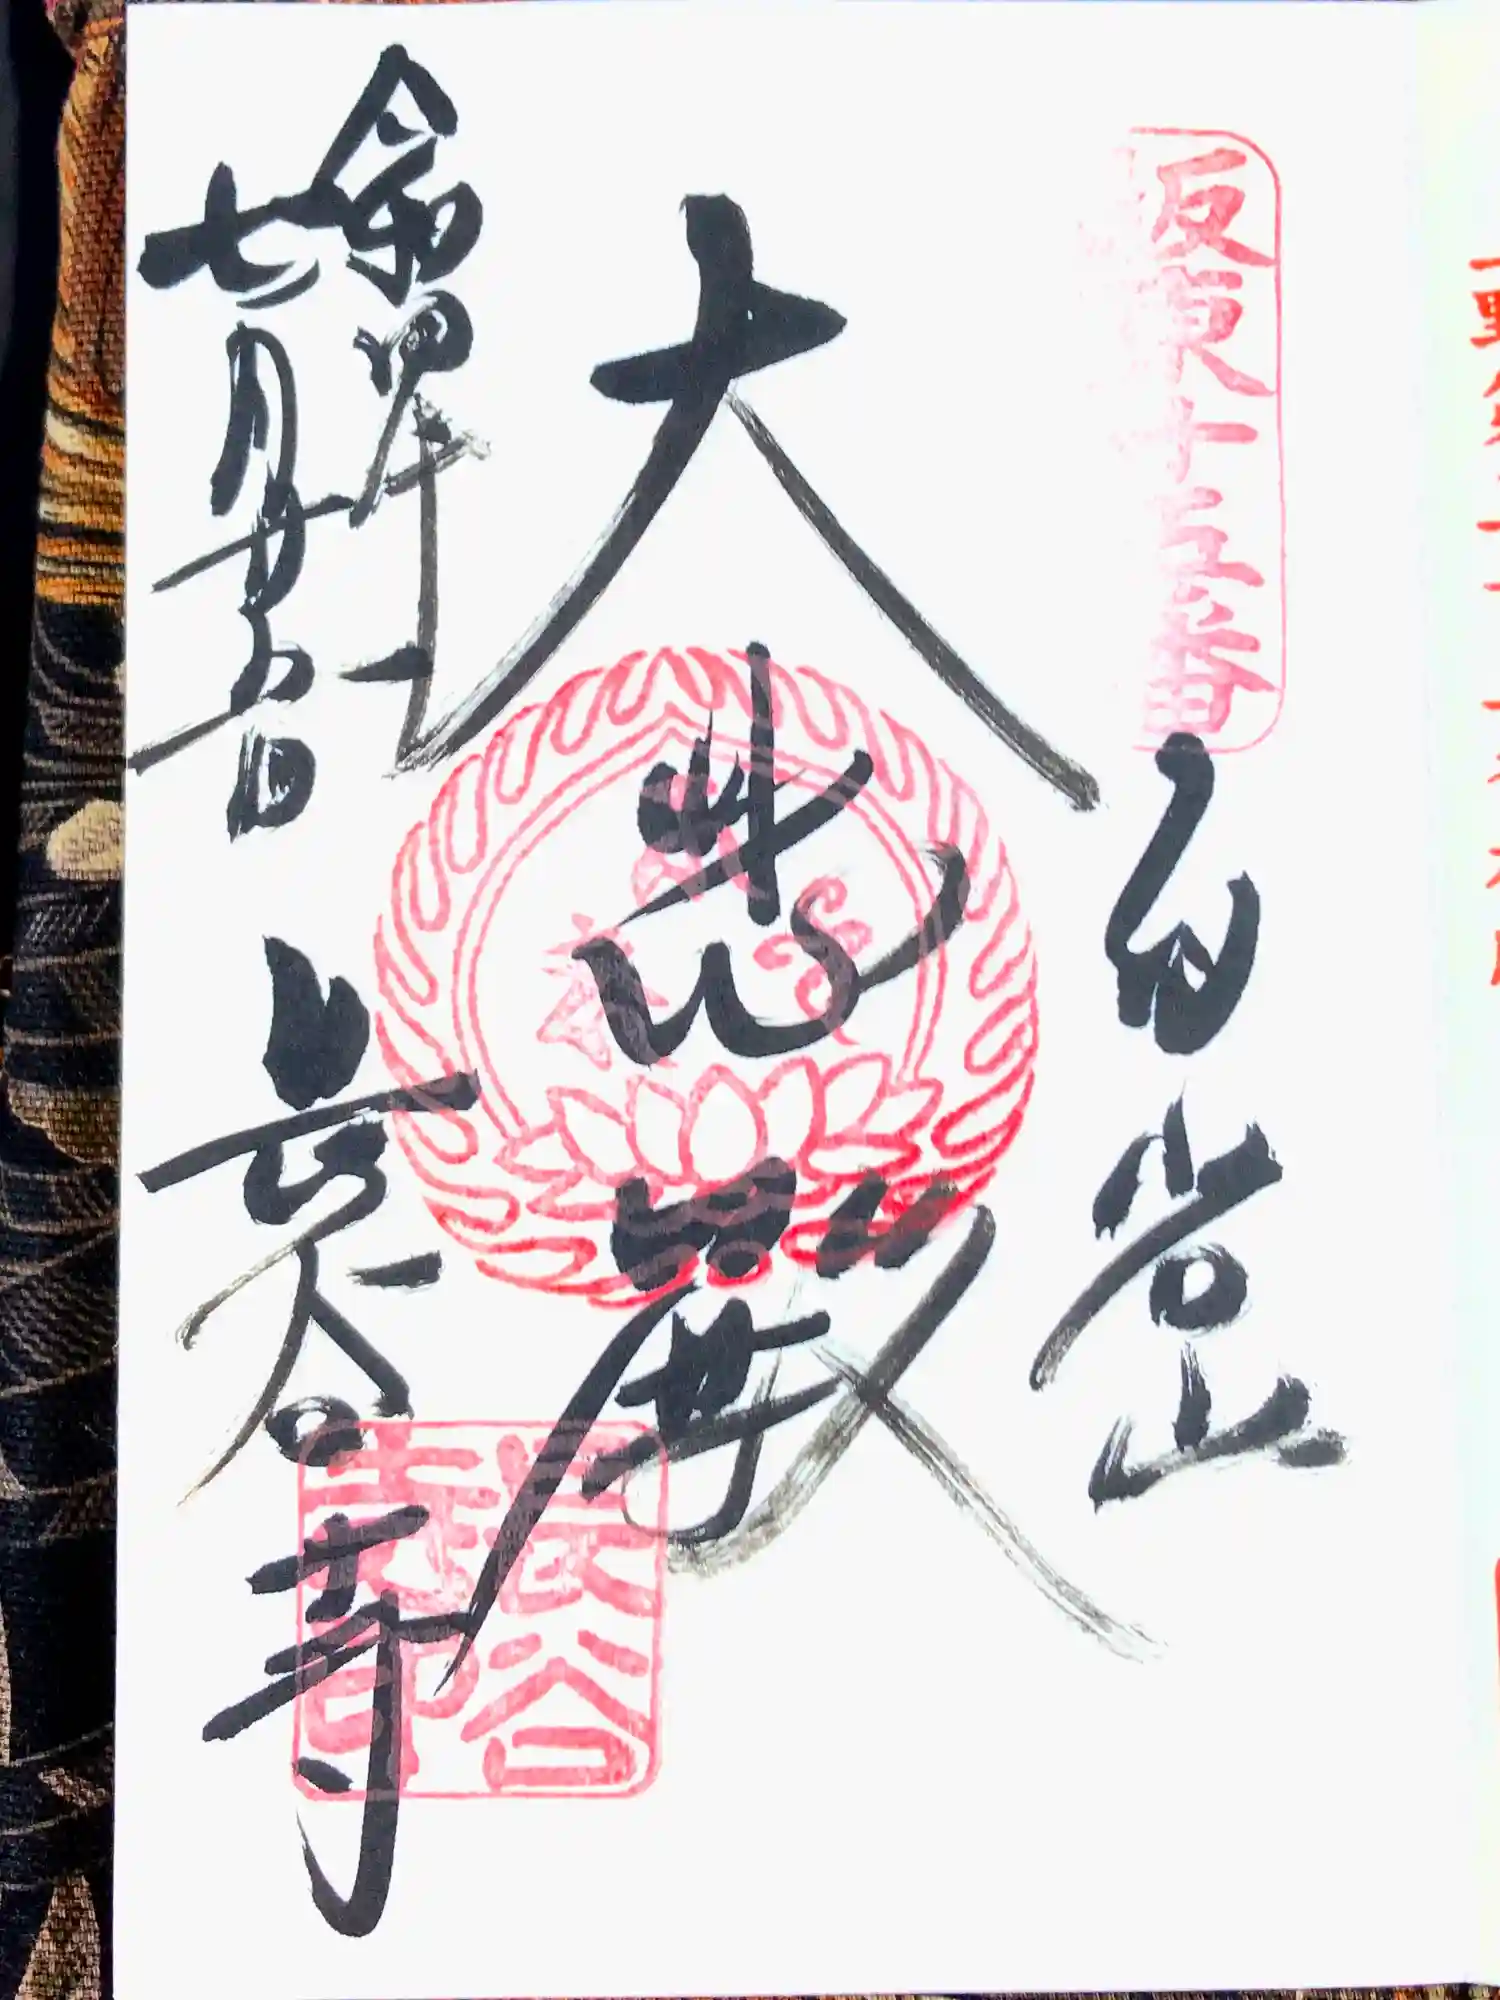 坂東十五番
白岩山
大悲殿
令和四年
七月廿五日
長谷寺
長谷
寺印